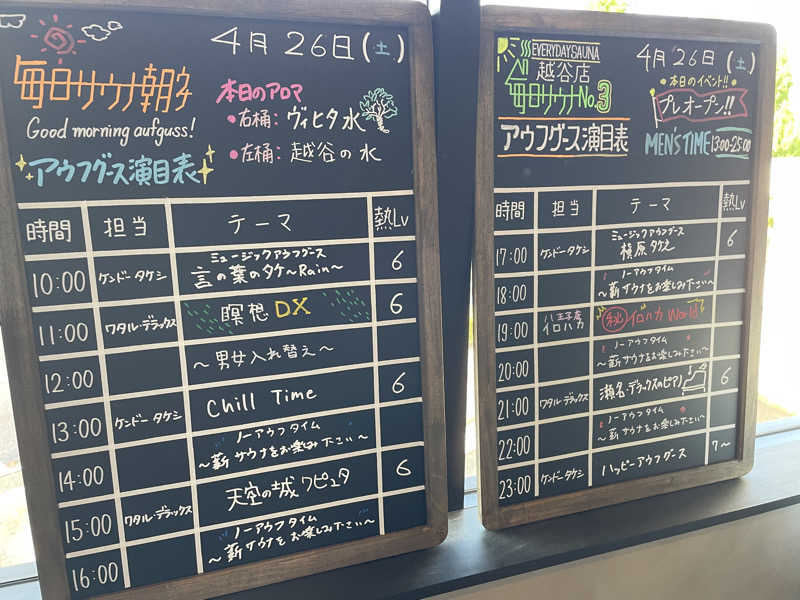 4月26日(土)
毎日サウナ朝分
Good morning aufguss!
アウフグース演目表
本日のアロマ
・右桶：ヴィヒタ水
・左桶：越谷の水
時間 担当 テーマ 熱Lv
10:00 ケンドータケシ ミュージックアウフグース 6
言の葉のタケ〜Rain〜
11:00 ワタル・デラックス 瞑想DX 6
12:00 〜男女入れ替え〜
13:00 ケンドータケシ Chill Time 6
14:00 ノーアウフタイム
〜薪サウナをお楽しみ下さい〜
15:00 ワタル・デラックス 天空の城ワピュタ 6
16:00 ノーアウフタイム
〜薪サウナをお楽しみ下さい〜
EVERYDAYSAUNA
越谷店
毎日サウナNo.3
アウフグース演目表
4月26日(土)
・本日のイベント!!・
プレオープン!!
MEN'S TIME 13:00-25:00
時間 担当 テーマ 熱Lv
17:00 ケンドータケシ ミュージックアウフグース 6
槇原タケ之
18:00 ノーアウフタイム
〜薪サウナをお楽しみ下さい〜
19:00 八王子店 イロハカ ㊙イロハカWorld
20:00 ノーアウフタイム
〜薪サウナをお楽しみ下さい〜
21:00 ワタル・デラックス 瀬名・デラックスのピアノ 6
22:00 ノーアウフタイム
〜薪サウナをお楽しみ下さい〜
23:00 ケンドータケシ ハッピーアウフグース 7〜